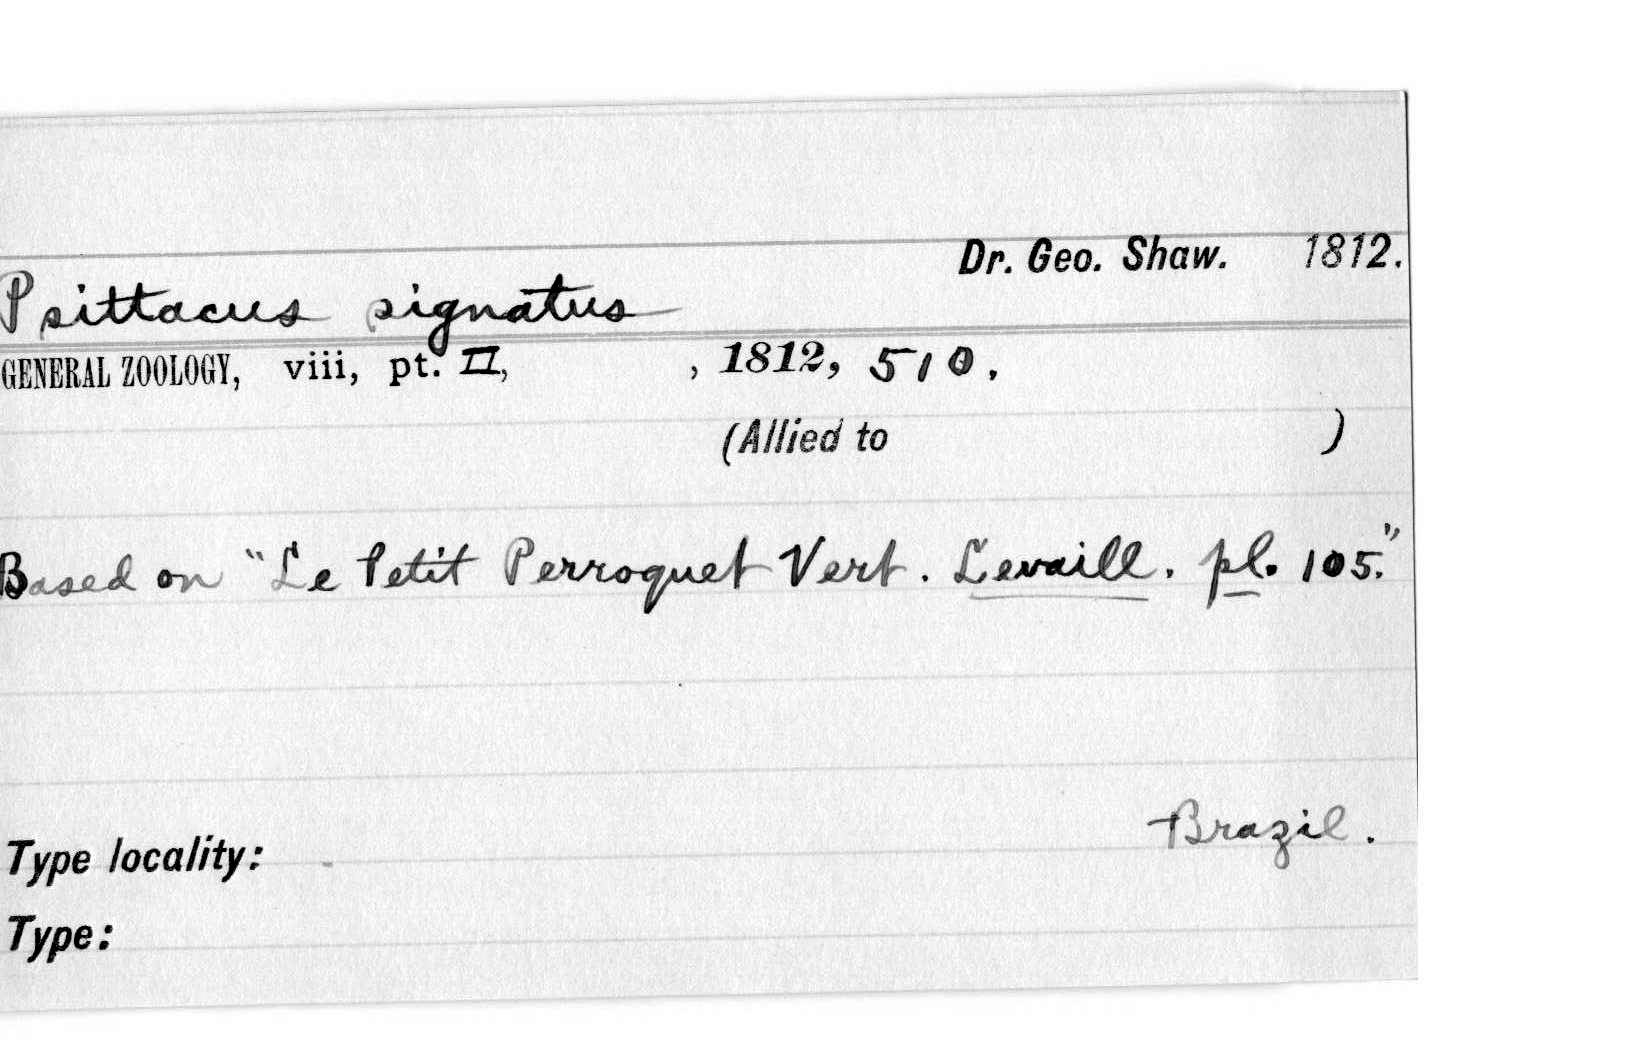 Dr. Geo. Shaw. 1812.
Psittacus signatus
GENERAL ZOOLOGY, viii, pt. II, , 1812, 510.
(Allied to )
Based on "Le Petit Perroquet Vert. Levaill. pl. 105."
Brazil.
Type locality: -
Type: